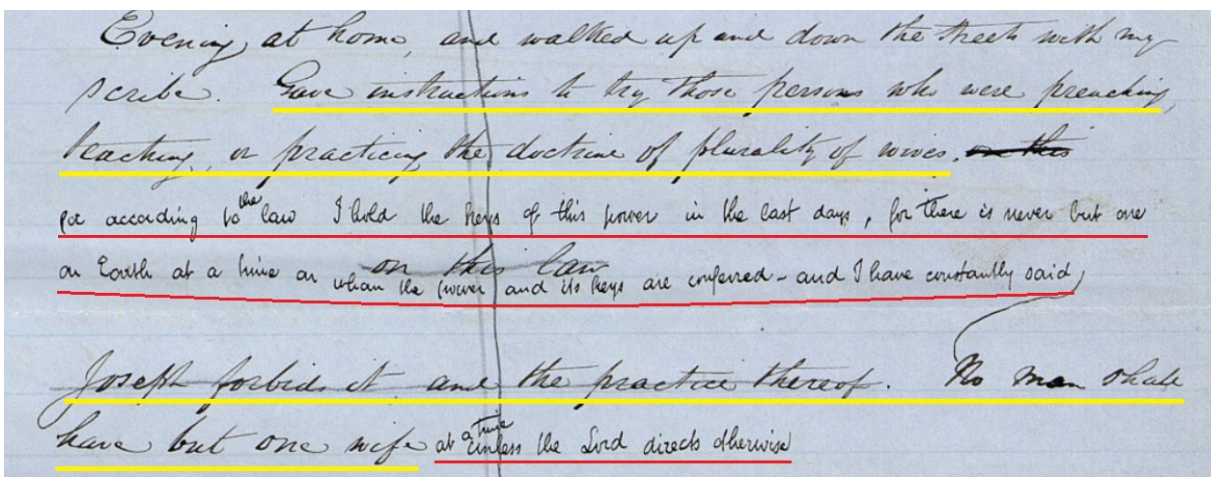 Evening, at home, and walked up and down the streets with my
scribe. Gave instructions to try those persons who were preaching,
teaching, or practicing the doctrine of plurality of wives. on this
for according to the law I hold the keys of this power in the last days, for there is never but one
on Earth at a time on whom the power and its keys are conferred - and I have constantly said
on this law
Joseph forbids it and the practice thereof. No man shall
have but one wife at a time unless the Lord directs otherwise